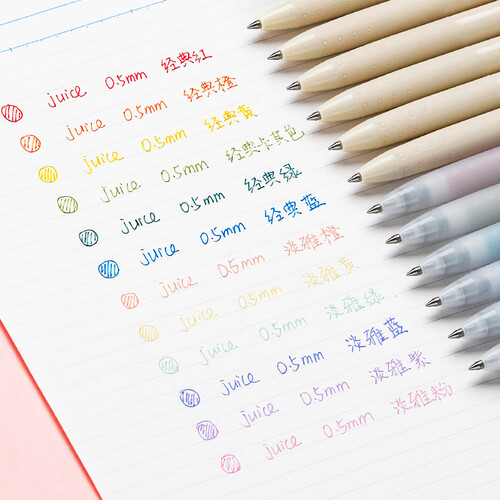 juice 0.5mm 经典红
juice 0.5mm 经典橙
juice 0.5mm 经典黄
juice 0.5mm 经典卡其色
juice 0.5mm 经典绿
juice 0.5mm 经典蓝
juice 0.5mm 淡雅橙
juice 0.5mm 淡雅黄
juice 0.5mm 淡雅绿
juice 0.5mm 淡雅蓝
juice 0.5mm 淡雅紫
juice 0.5mm 淡雅粉